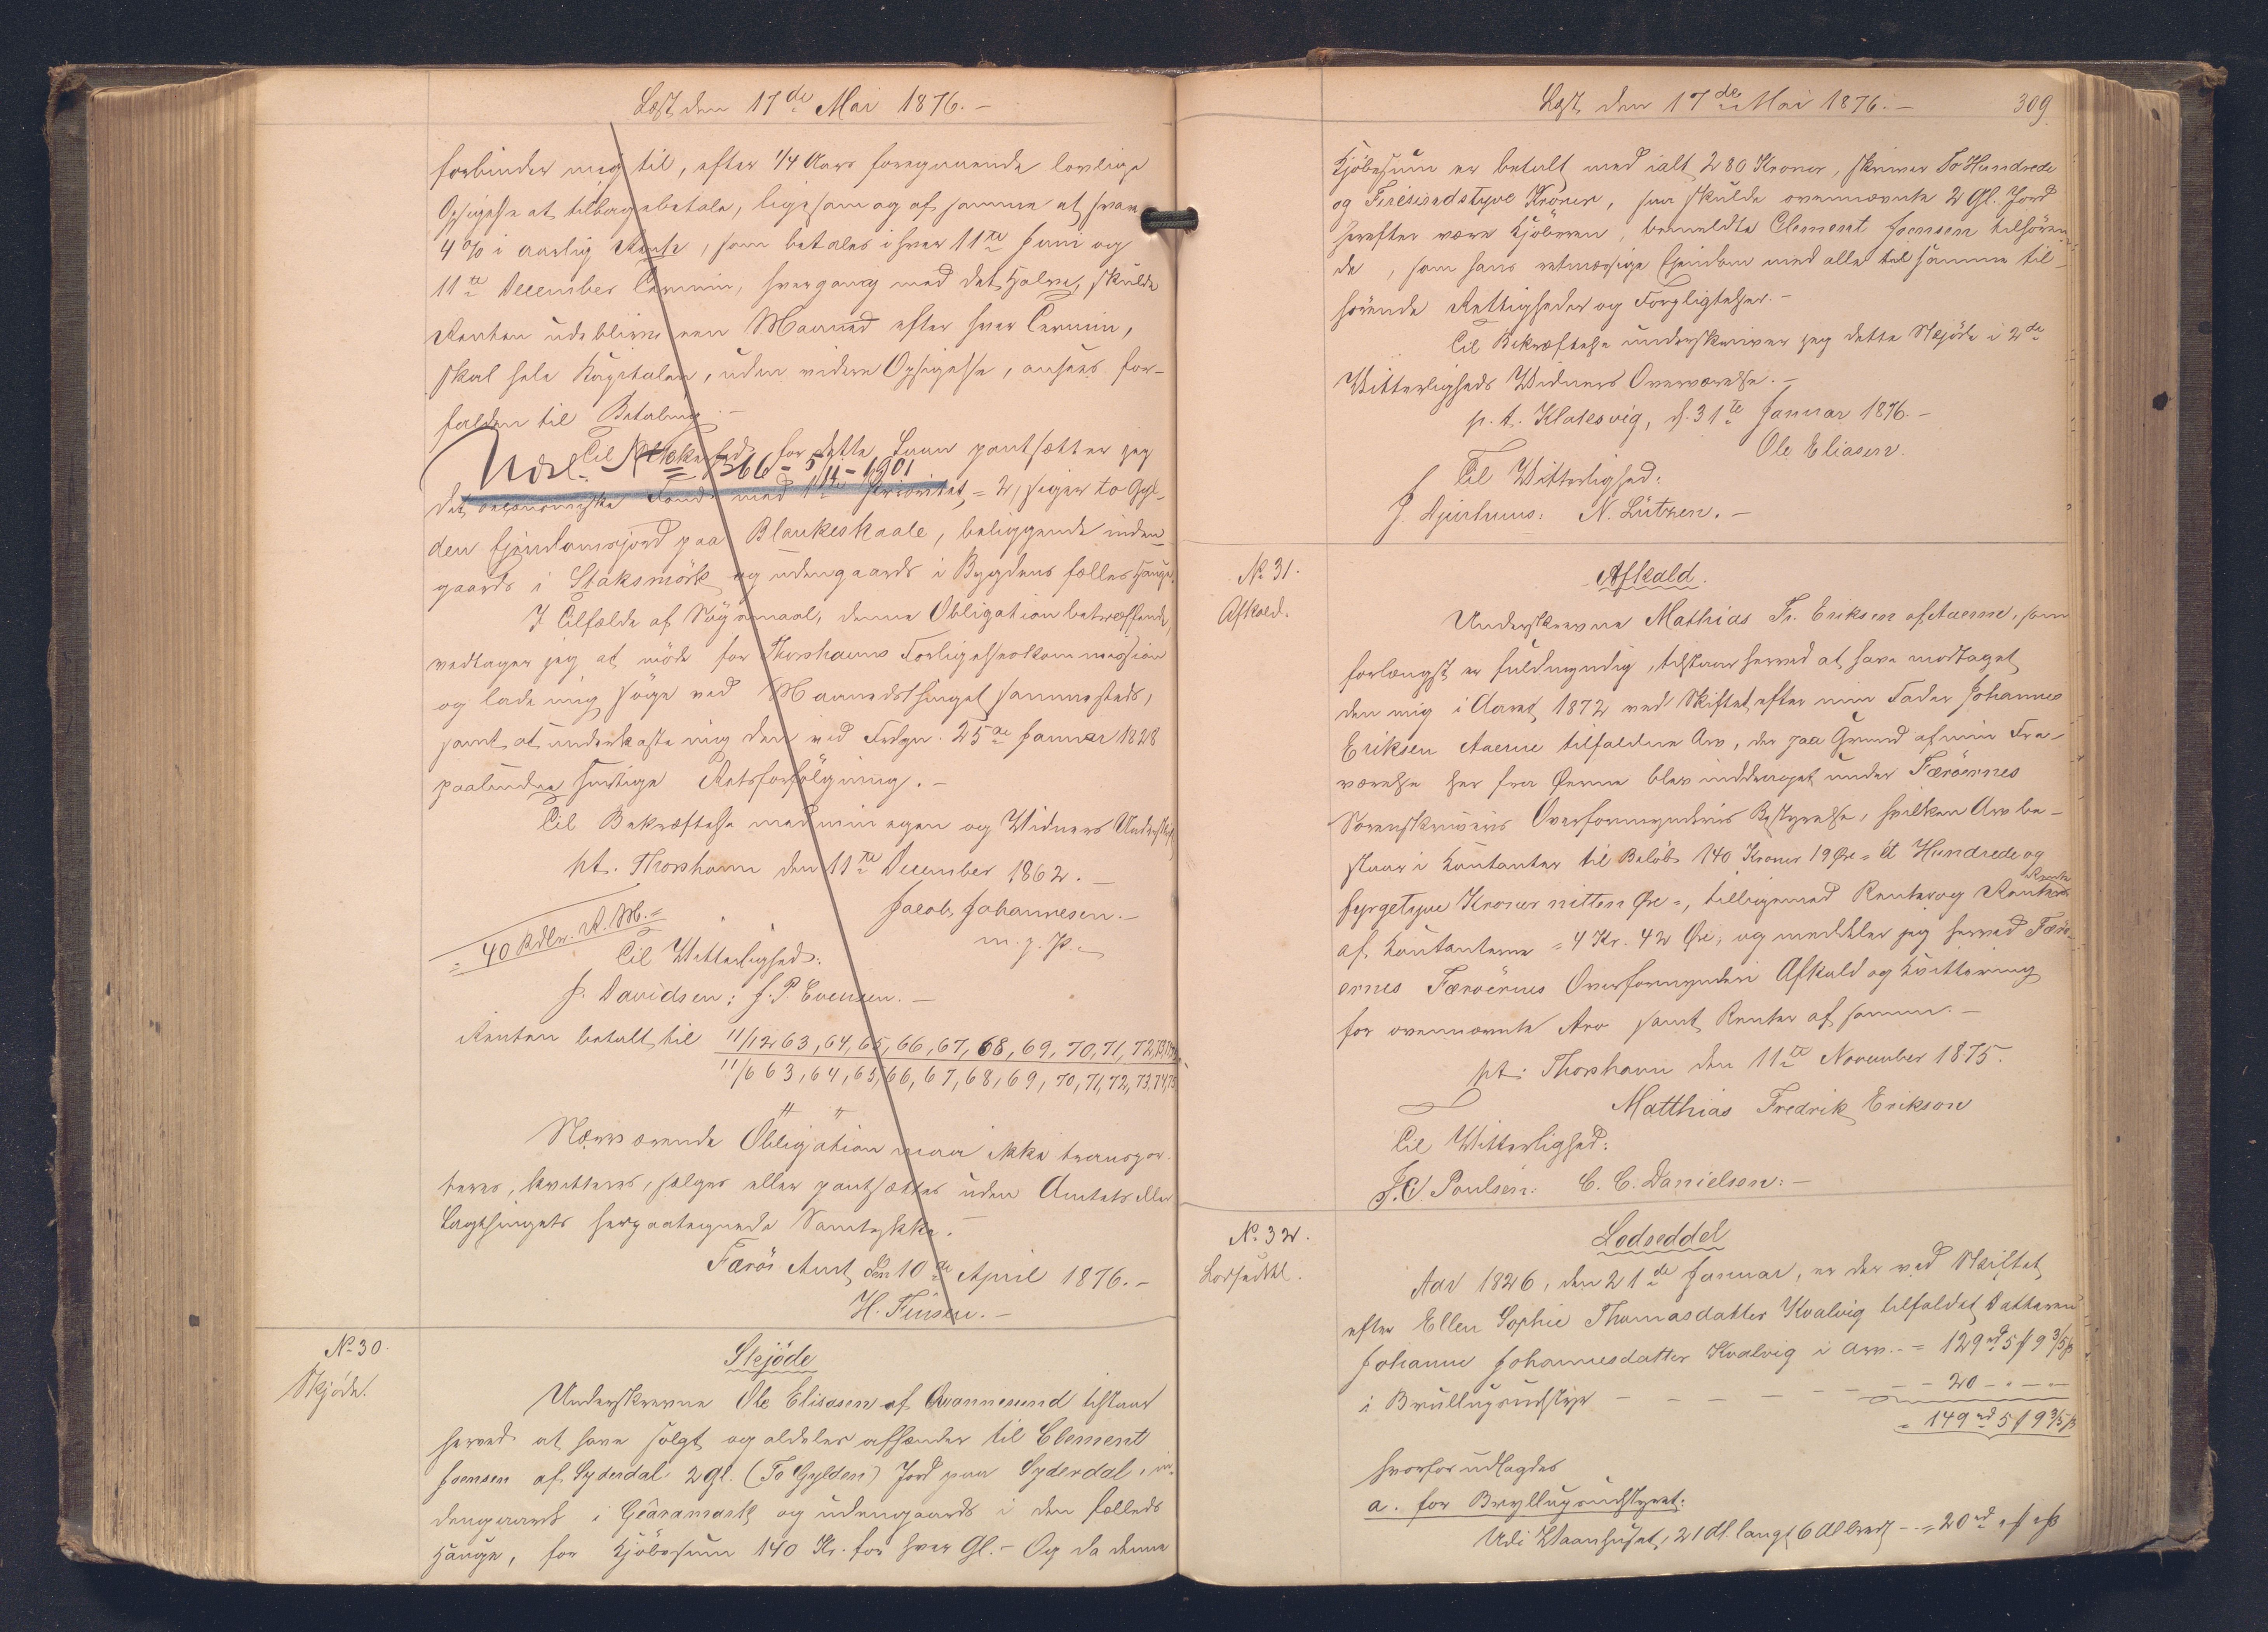 Læst den 17de Mai 1876.-
forbinder mig til, efter 1/4 Aars foregaaende lovlige
Opsigelse at tilbagebetale, ligesom og af samme at svare
4 % i aarlig Rente, som betales i hver 11te Juni og
11te December Termin, hvergang med det Halve, skulde
Renten udeblive een Maaned efter hver Termin,
skal hele Kapitalen, uden videre Opsigelse, ansees for-
falden til Betaling.-
Til Sikkerhed for dette Laan pantsætter jeg
366 - 5/11 - 1901
det oeconomiske Fond med 1ste Prioritet, = 2, siger to Gyl-
den Ejendomsjord paa Blankeskaale, beliggende inden-
gaards i Staksmörk og udengaards i Bygdens fælles Hauge.
I Tilfælde af Sögsmaal, denne Obligation betræffende,
vedtager jeg at möde for Thorshavns Forligelseskommission
og lade mig söge ved Maanedsthinget sammesteds,
samt at underkaste mig den ved Frdgn. 25de Januar 1828
paabudne hurtige Retsforfölgning.-
Til Bekræftelse med min egen og Vidners Underskrift
pt. Thorshavn den 11te December 1862.-
Jacob Johannesen.-
m. f. P.
= 40 Rdlr. R. M. =
Til Vitterlighed:
J. Davidsen: J. P. Evensen.-
Renten betalt til 11/12 63, 64, 65, 66, 67, 68, 69, 70, 71, 72, 73, 74
11/6 63, 64, 65, 66, 67, 68, 69, 70, 71, 72, 73, 74, 75
Nærværende Obligation maa ikke transpor-
teres, kvitteres, sælges eller pantsættes uden Amtets eller
Lagthingets herpaategnede Samtykke.
Færös Amt, den 10de April 1876.-
H. Finsen.-
No 30.
Skjöde.
Skjöde
Underskrevne Ole Eliasen af Qvannesund tilstaar
herved at have solgt og aldeles afhænder til Clement
Joensen af Syderdal 2 Gl. (To Gylden) Jord paa Syderdal, in-
dengaards i Gearamark og udengaards i den fælleds
Hauge, for Kjöbesum 140 Kr. for hver Gl.- Og da denne
Læst den 17de Mai 1876.-
309
Kjöbesum er betalt med ialt 280 Kroner, skriver To Hundrede
og Firesindstyve Kroner, saa skulde ovennævnte 2 Gl. Jord
herefter være Kjöberen, bemeldte Clement Joensen tilhören-
de, som hans retmæssige Ejendom med alle til samme til-
hörende Rettigheder og Forpligtelser.-
Til Bekræftelse underskriver jeg dette Skjöde i 2de
Vitterligheds Vidners Overværelse.-
p. t. Klaksvig, d. 31te Januar 1876.-
Ole Eliasen.
Til Vitterlighed:
J. Djurhuus: N. Lützen.-
No 31.
Afkald.
Afkald.
Underskrevne Mathias Fr. Eriksen af Aaerne, som
forlængst er fuldmyndig, tilstaar herved at have modtaget
den mig i Aaret 1872 ved Skiftet efter min Fader Johannes
Eriksen Aaerne tilfaldne Arv, der paa Grund af min Fra-
værelse her fra Öerne blev inddraget under Færöernes
Sorenskrivers Overformynderies Bestyrelse, hvilken Arv be-
staar i Kontanter til Belöb 140 Kroner 19 Öre = et Hundrede og
fyrgetyve Kroner nitten Öre =, tilligemed Renter og Renters Rente
af Kontanterne = 4 Kr. 42 Öre, og meddeler jeg herved Færö-
ernes Færöernes Overformynderi Afkald og Kvittering
for ovennævnte Arv samt Renter af samme.-
pt. Thorshavn den 11te November 1875.
Matthias Fredrik Erikson
Til Vitterlighed:
J. C. Poulsen: C. C. Danielsen:-
No 32.
Lodseddel.
Lodseddel
Aar 1826, den 21de Januar, er der ved Skiftet
efter Ellen Sophie Thomasdatter Kvalvig tilfaldet Datteren
Johanne Johannesdatter Kvalvig i Arv.- = 129 rd 5 ƒ 9 3/5 s
i Brullupsudstyr - - - - - - - 20 - - -
= 149 rd 5 ƒ 9 3/5 s
hvorfor udlagdes
a. for Bryllupsudstyret:
Udi Vaanhuset, 21 Al. langt 6 Al bredt - - = 20 rd " ƒ " s